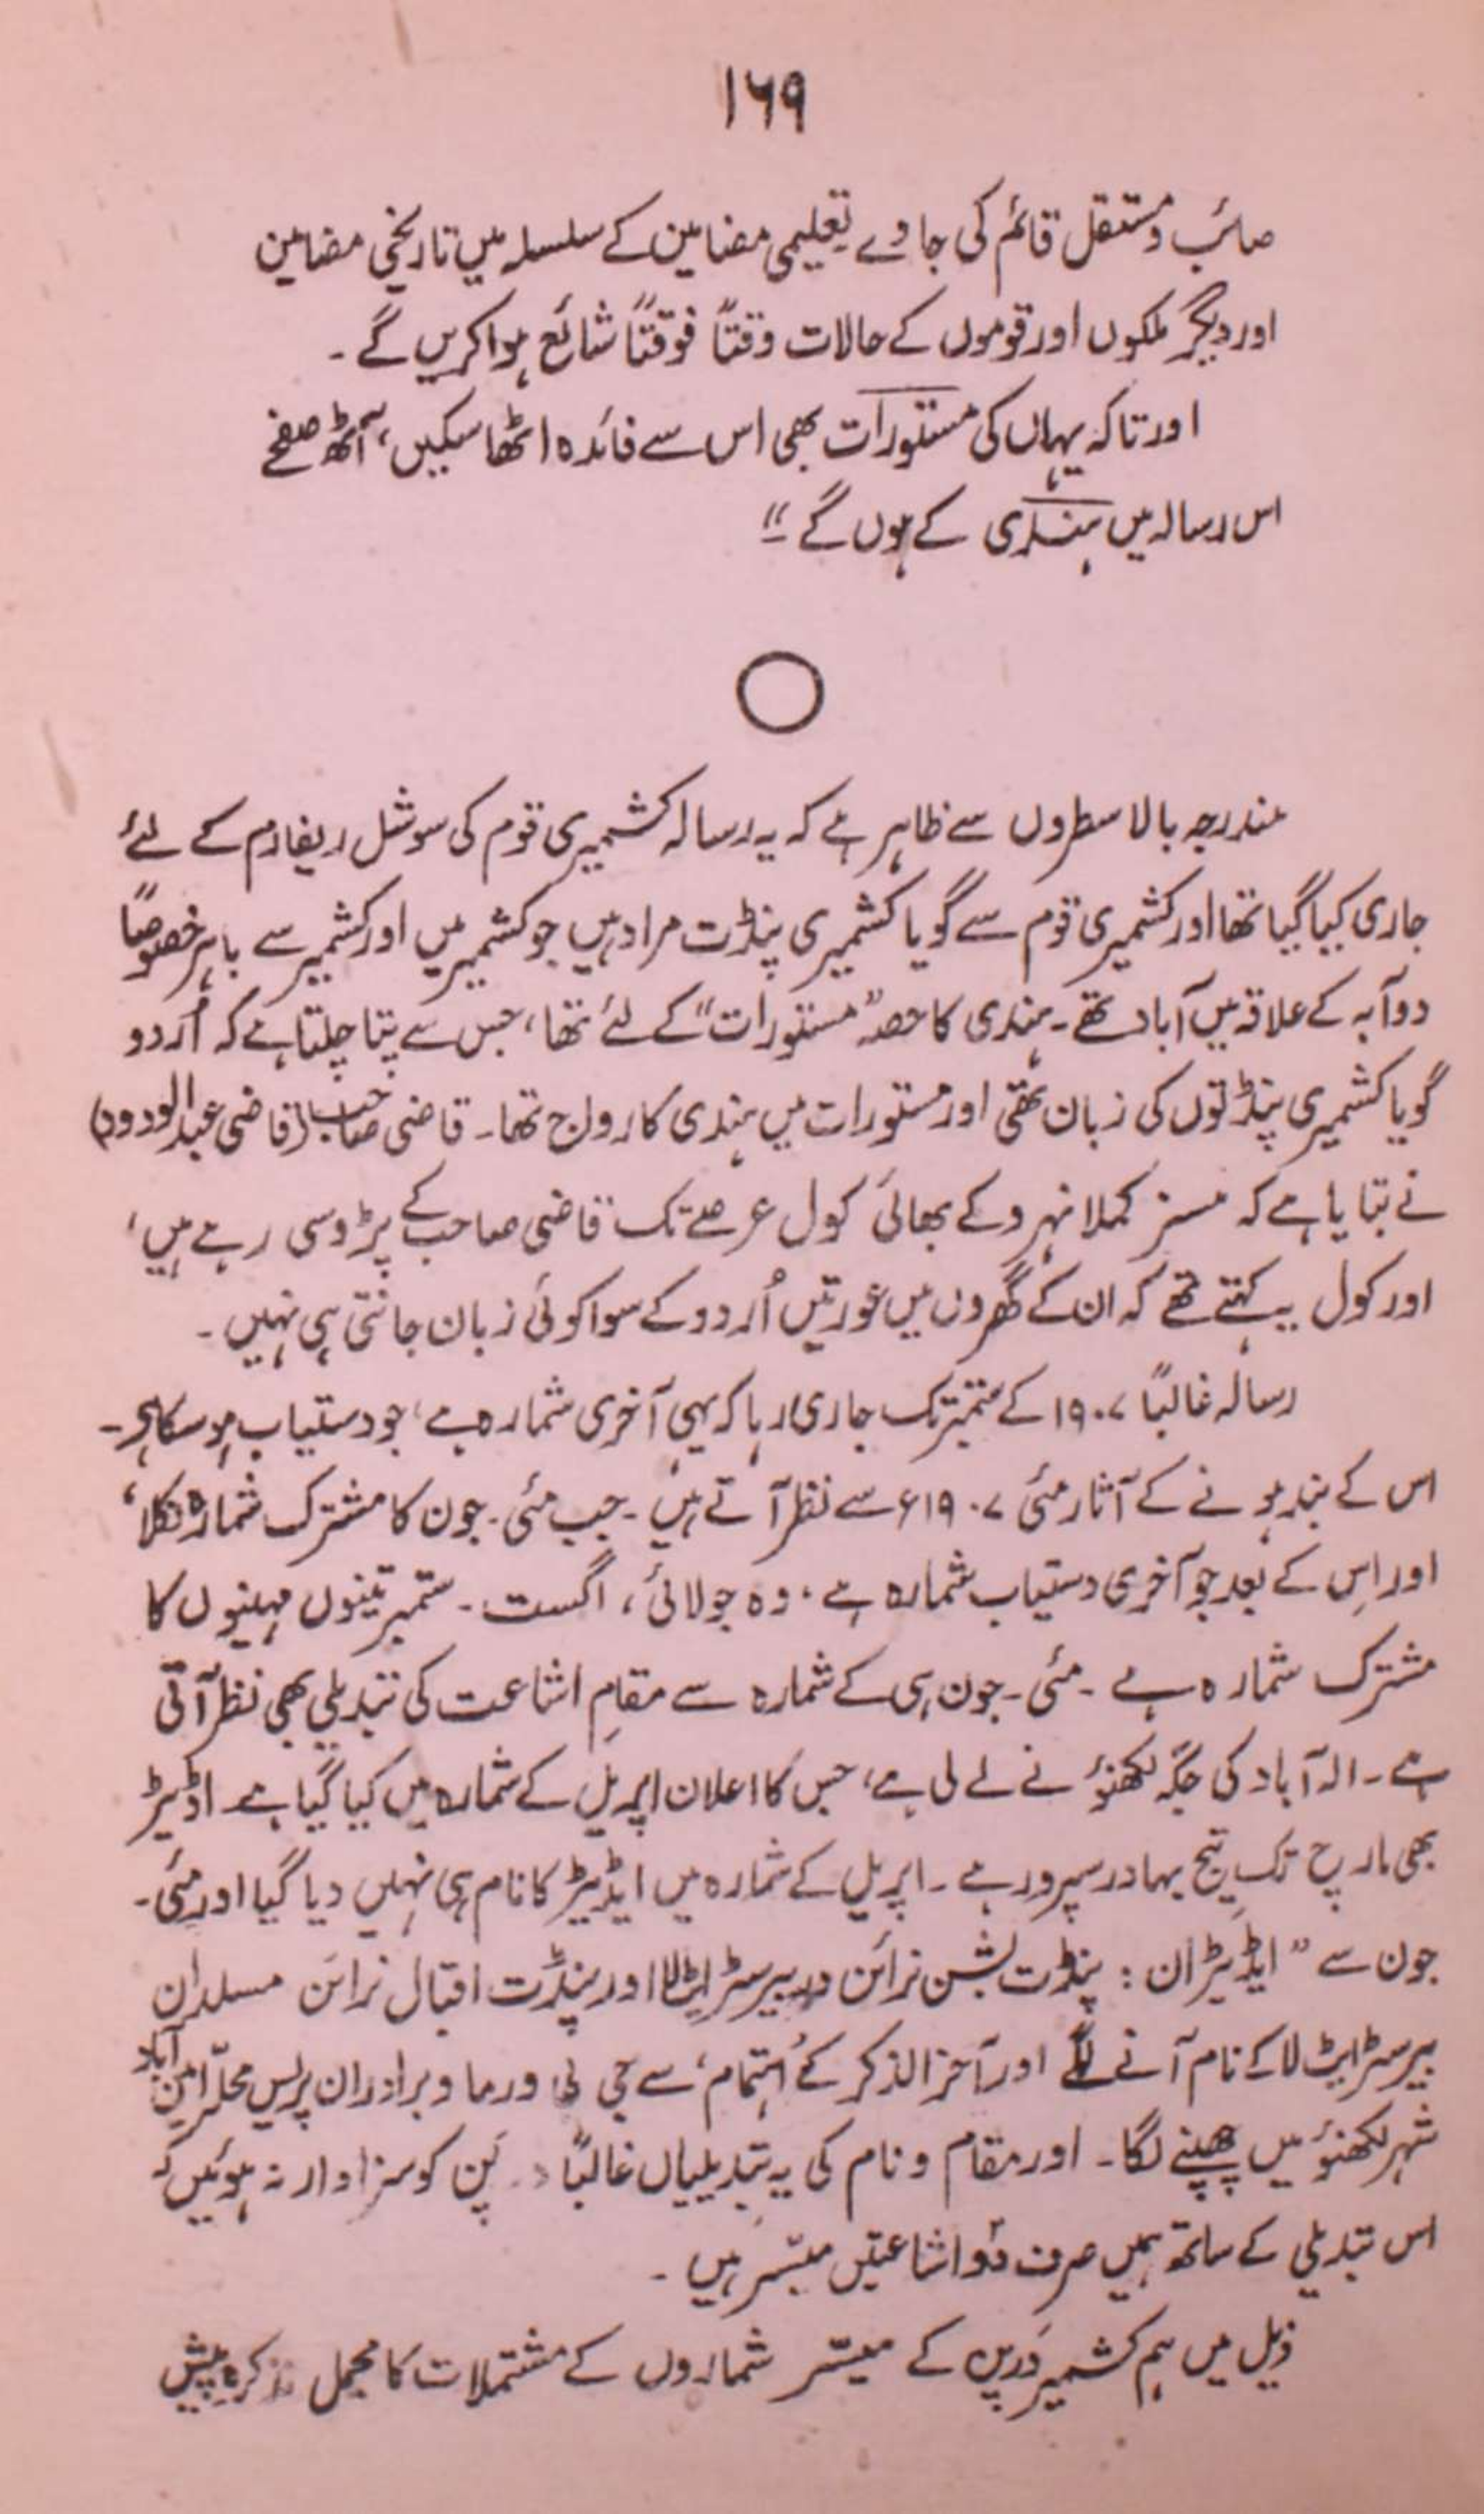 ۱۶۹
صائب و مستقل قائم کی جاوے تعلیمی مضامین کے سلسلہ میں تاریخی مضامین
اور دیگر ملکوں اور قوموں کے حالات وقتاً فوقتاً شائع ہوا کریں گے ۔
اور تاکہ یہاں کی مستورات بھی اس سے فائدہ اٹھا سکیں، آٹھ صفحے
اس رسالہ میں ہندی کے ہوں گے ۔"
مندرجہ بالا سطروں سے ظاہر ہے کہ یہ رسالہ کشمیری قوم کی سوشل ریفارم کے لئے
جاری کیا گیا تھا اور کشمیری قوم سے گویا کشمیری پنڈت مراد ہیں جو کشمیر میں اور کشمیر سے باہر خصوصاً
دوآبہ کے علاقہ میں آباد تھے ۔ ہندی کا حصہ "مستورات" کے لئے تھا، جس سے پتا چلتا ہے کہ اُردو
گویا کشمیری پنڈتوں کی زبان تھی اور مستورات میں ہندی کا رواج تھا ۔ قاضی صاحب (قاضی عبدالودود)
نے بتایا ہے کہ مسز کملا نہرو کے بھائی کول عرصے تک قاضی صاحب کے پڑوسی رہے ہیں،
اور کول یہ کہتے تھے کہ ان کے گھروں میں عورتیں اُردو کے سوا کوئی زبان جانتی ہی نہیں ۔
رسالہ غالباً ۱۹۰۷ کے ستمبر تک جاری رہا کہ یہی آخری شمارہ ہے، جو دستیاب ہو سکا ہے ۔
اس کے بند ہونے کے آثار مئی ۱۹۰۷ء سے نظر آتے ہیں ۔ جب مئی ۔ جون کا مشترک شمارہ نکلا،
اور اِس کے بعد جو آخری دستیاب شمارہ ہے، وہ جولائی، اگست ۔ ستمبر تینوں مہینوں کا
مشترک شمارہ ہے ۔ مئی ۔ جون ہی کے شمارہ سے مقامِ اشاعت کی تبدیلی بھی نظر آتی
ہے ۔ الہ آباد کی جگہ لکھنؤ نے لے لی ہے، جس کا اعلان اپریل کے شمارہ میں کیا گیا ہے ۔ اڈیٹر
بھی مارچ تک تیج بہادر سپرو رہے ۔ اپریل کے شمارہ میں ایڈیٹر کا نام ہی نہیں دیا گیا اور مئی ۔
جون سے "ایڈیٹران : پنڈت بشن نرائن در بیرسٹر ایٹ لا اور پنڈت اقبال نرائن مسلدان
بیرسٹر ایٹ لا کے نام آنے لگے اور آخر الذکر کے 'اہتمام' سے جی پی ورما و برادران پریس محلہ امین آباد
شہر لکھنؤ میں چھپنے لگا ۔ اور مقام و نام کی یہ تبدیلیاں غالباً کو سزاوار نہ ہوئیں کہ
اس تبدیلی کے ساتھ ہمیں صرف دو اشاعتیں میسّر ہیں ۔
ذیل میں ہم کشمیر درپن کے میسّر شماروں کے مشتملات کا مجمل تذکرہ پیش